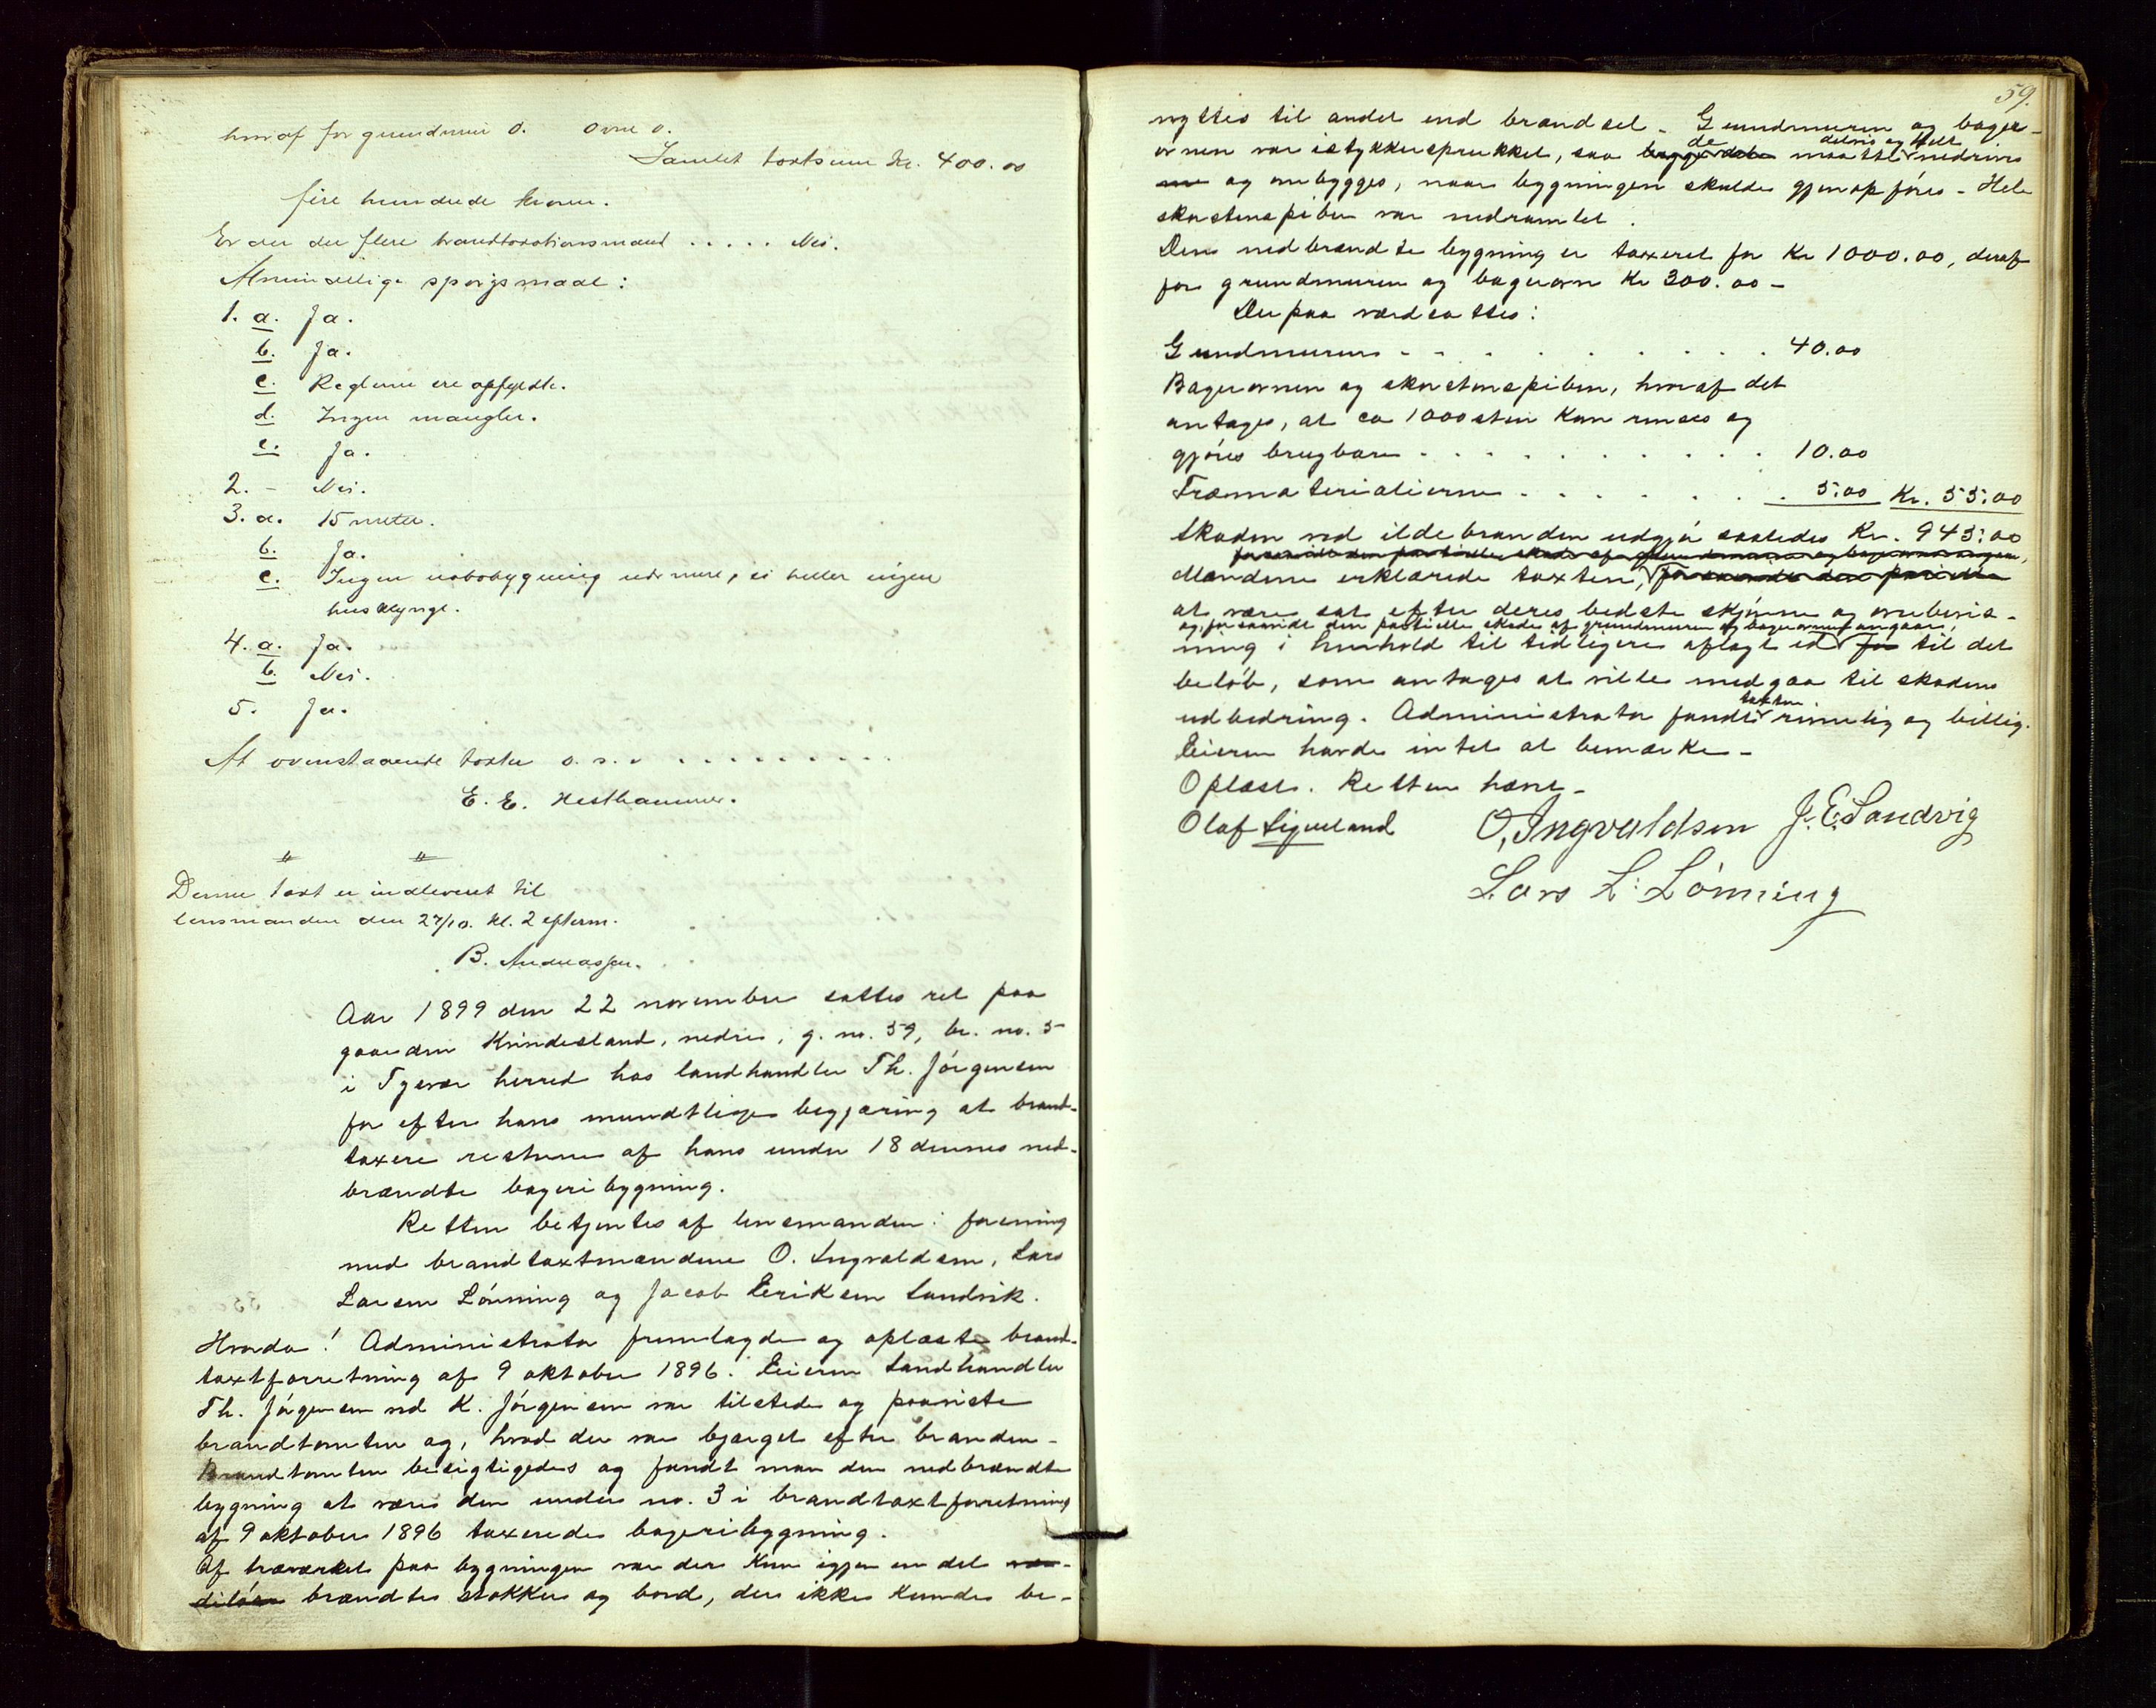 hvoraf for grundmur 0. ovne 0.
Samlet taxtsum Kr. 400.00
fire hundrede kroner.
Er der der flere brandtaxationsmænd ..... Nei.
Almindelige spørgsmaal:
1. a. Ja.
b. Ja.
c. Reglerne ere opfyldte.
d. Ingen mangler.
e. Ja.
2. - Nei.
3. a. 15 meter.
b. Ja.
c. Ingen nabobygning nærmere, ei heller nogen
husklynge.
4. a. Ja.
b. Nei.
5. Ja.
At ovenstaaende taxter o. s. v. .........
E. E. Hesthammer.
" "
Denne taxt er indleveret til
lensmanden den 27/10. kl. 2 efterm.
B. Andreassen.
Aar 1899 den 22 november sattes ret paa
gaarden Kvindesland, nedre, g. no. 59, br. no. 5
i Tysvær herred hos landhandler Th. Jörgensen
for efter hans mundtlige begjæring at brand-
taxere resterne af hans under 18 dennes ned-
brændte bageribygning.
Retten betjentes af lensmanden i forening
med brandtaxtmændene O. Ingvaldsen, Lars
Larsen Lönning og Jacob Eriksen Sandvik.
Hvorda! Administrator fremlagde og oplæste brand-
taxtforretning af 9 oktober 1896. Eieren landhandler
Th. Jörgensen ved K. Jörgensen var tilstede og paaviste
brandtomten og, hvad der var bjærget efter branden -
Brandtomten besigtigedes og fandt man den nedbrændte
bygning at være den under no. 3 i brandtaxtforretning
af 9 oktober 1896 taxerede bageribygning.
Af træværket paa bygningen var der kun igjen en del vær-
diløse brændte stokker og bord, der ikke kunde be-
59.
nyttes til andet end brændsel - Grundmuren og bager-
de delvis og helt
ovnen var istykkersprukket, saa begge dele maatte nedrives
og ombygges, naar bygningen skulde gjenopföres - Hele
skorstenspiben var nedramlet.
Den nedbrændte bygning er taxeret for Kr 1000.00, deraf
for grundmuren og bagerovn Kr 300.00 -
Derpaa værdsattes:
Grundmuren - - . . . . . . . 40.00
Bagerovnen og skorstenspiben, hvoraf det
antages, at ca 1000 sten kan renses og
gjöres brugbare . . . . . . . . 10.00
Træmaterialierne . . . . . . . 5.00 Kr. 55.00
Skaden ved ildebranden udgjör saaledes Kr. 945.00
forsaavidt den partielle skade af grundmuren og bagerovnen angaar,
Mændene erklærede taxten, forsaavidt den partielle
at være sat efter deres bedste skjönne og overbevis-
og, forsaavidt den partielle skade af grundmuren og bagerovnen angaar,
ning i henhold til tidligere aflagt ed for til det
belöb, som antages at ville medgaa til skadens
taxten
udbedring. Administrator fandt rimelig og billig.
Eieren havde intet at bemærke -
Oplæst. Retten hævet -
Olaf Ligueland O. Ingvaldsen J. E. Sandvig
Lars L. Lönning